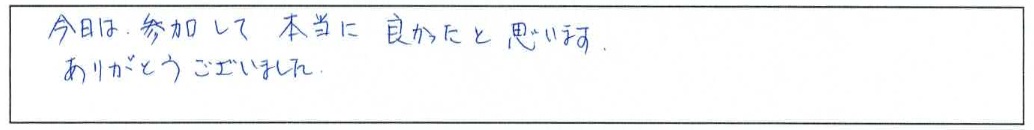 今日は、参加して 本当に 良かったと 思います.
ありがとうございました.